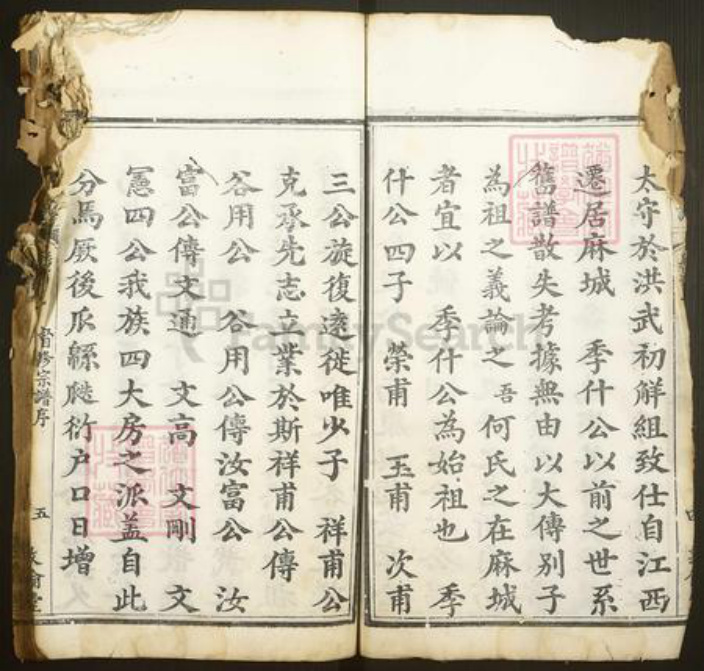 太守於洪武初解組致仕自江西
遷居麻城 季什公以前之世系
舊譜散失考據無由以大傳別子
為祖之義論之吾何氏之在麻城
者宜以 季什公為始祖也 季
什公四子 榮甫 玉甫 次甫
三公旋復遠徙唯少子 祥甫公
克承先志立業於斯祥甫公傳
谷用公 谷用公傳汝富公 汝
富公傳文通 文高 文剛 文
憲四公我族四大房之派盖自此
分焉厥後瓜緜瓞衍户口日增
宗譜序
五
FamilySearch